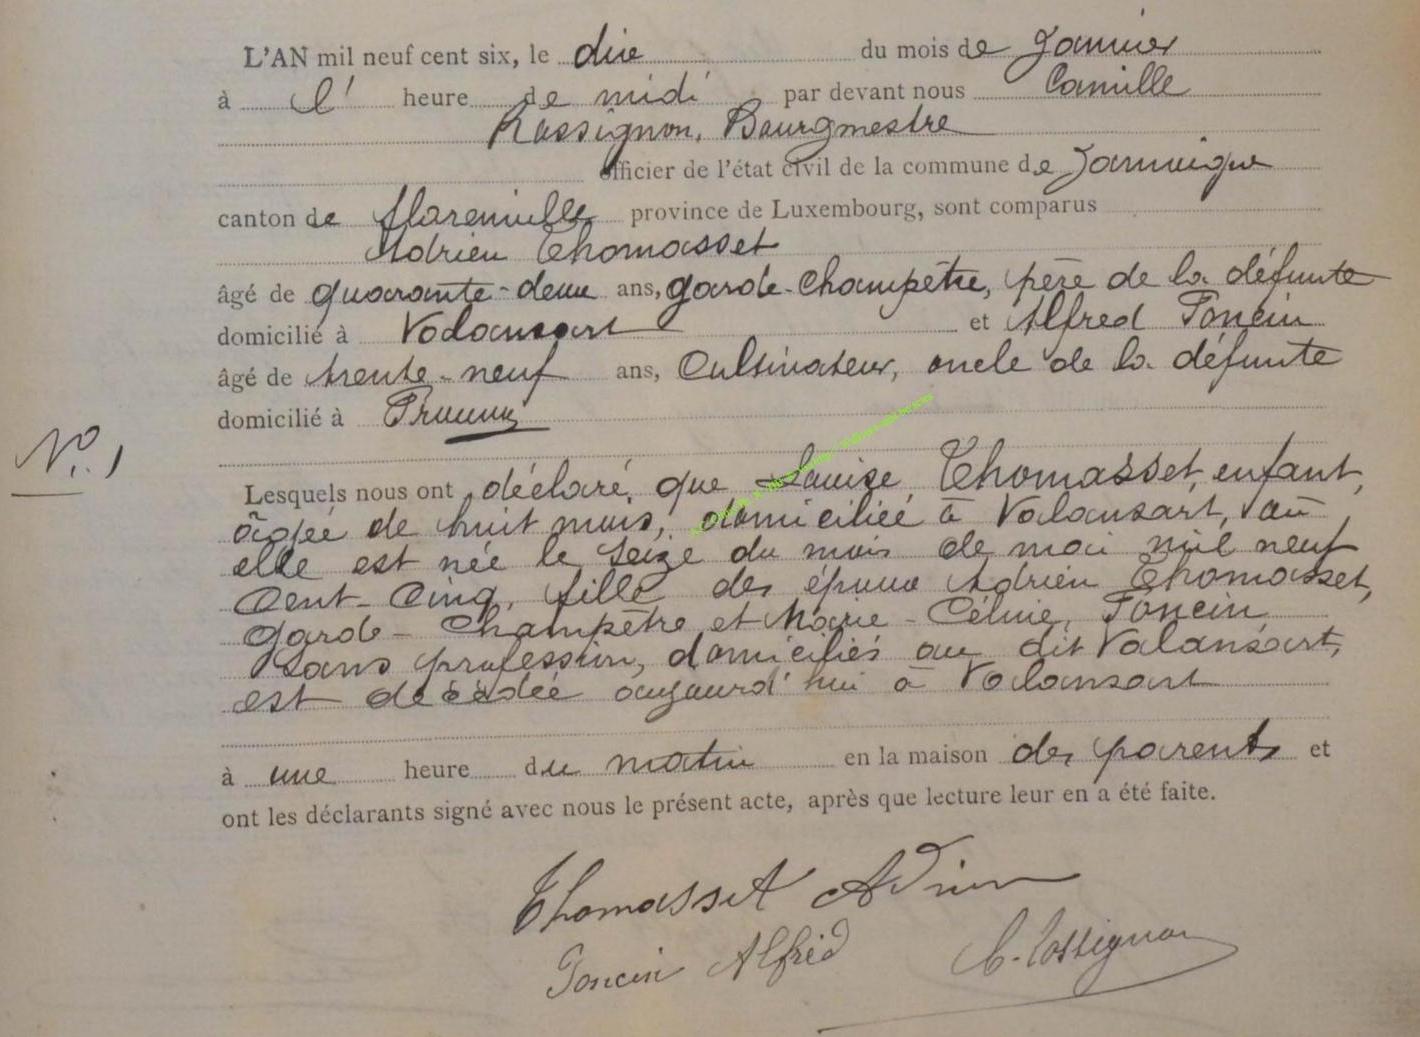 L'AN mil neuf cent six, le dix du mois de Janvier
à l' heure de midi par devant nous Camille
Rossignon, Bourgmestre
officier de l'état civil de la commune de Jamoigne
canton de Florenville province de Luxembourg, sont comparus
Adrien Thomasset
âgé de quarante-deux ans, garde-champêtre, père de la défunte
domicilié à Valansart et Alfred Poncin
âgé de trente-neuf ans, Cultivateur, oncle de la défunte
domicilié à
N° 1
Lesquels nous ont déclaré que Louise Thomasset, enfant,
âgée de huit mois, domiciliée à Valansart, où
elle est née le seize du mois de mai mil neuf
cent-cinq, fille des époux Adrien Thomasset,
garde-champêtre et Marie-Céline Poncin,
sans profession, domiciliés au dit Valansart,
est décédée aujourd'hui à Valansart
à une heure du matin en la maison des parents et
ont les déclarants signé avec nous le présent acte, après que lecture leur en a été faite.
Thomasset Adrien
Poncin Alfred C. Rossignon